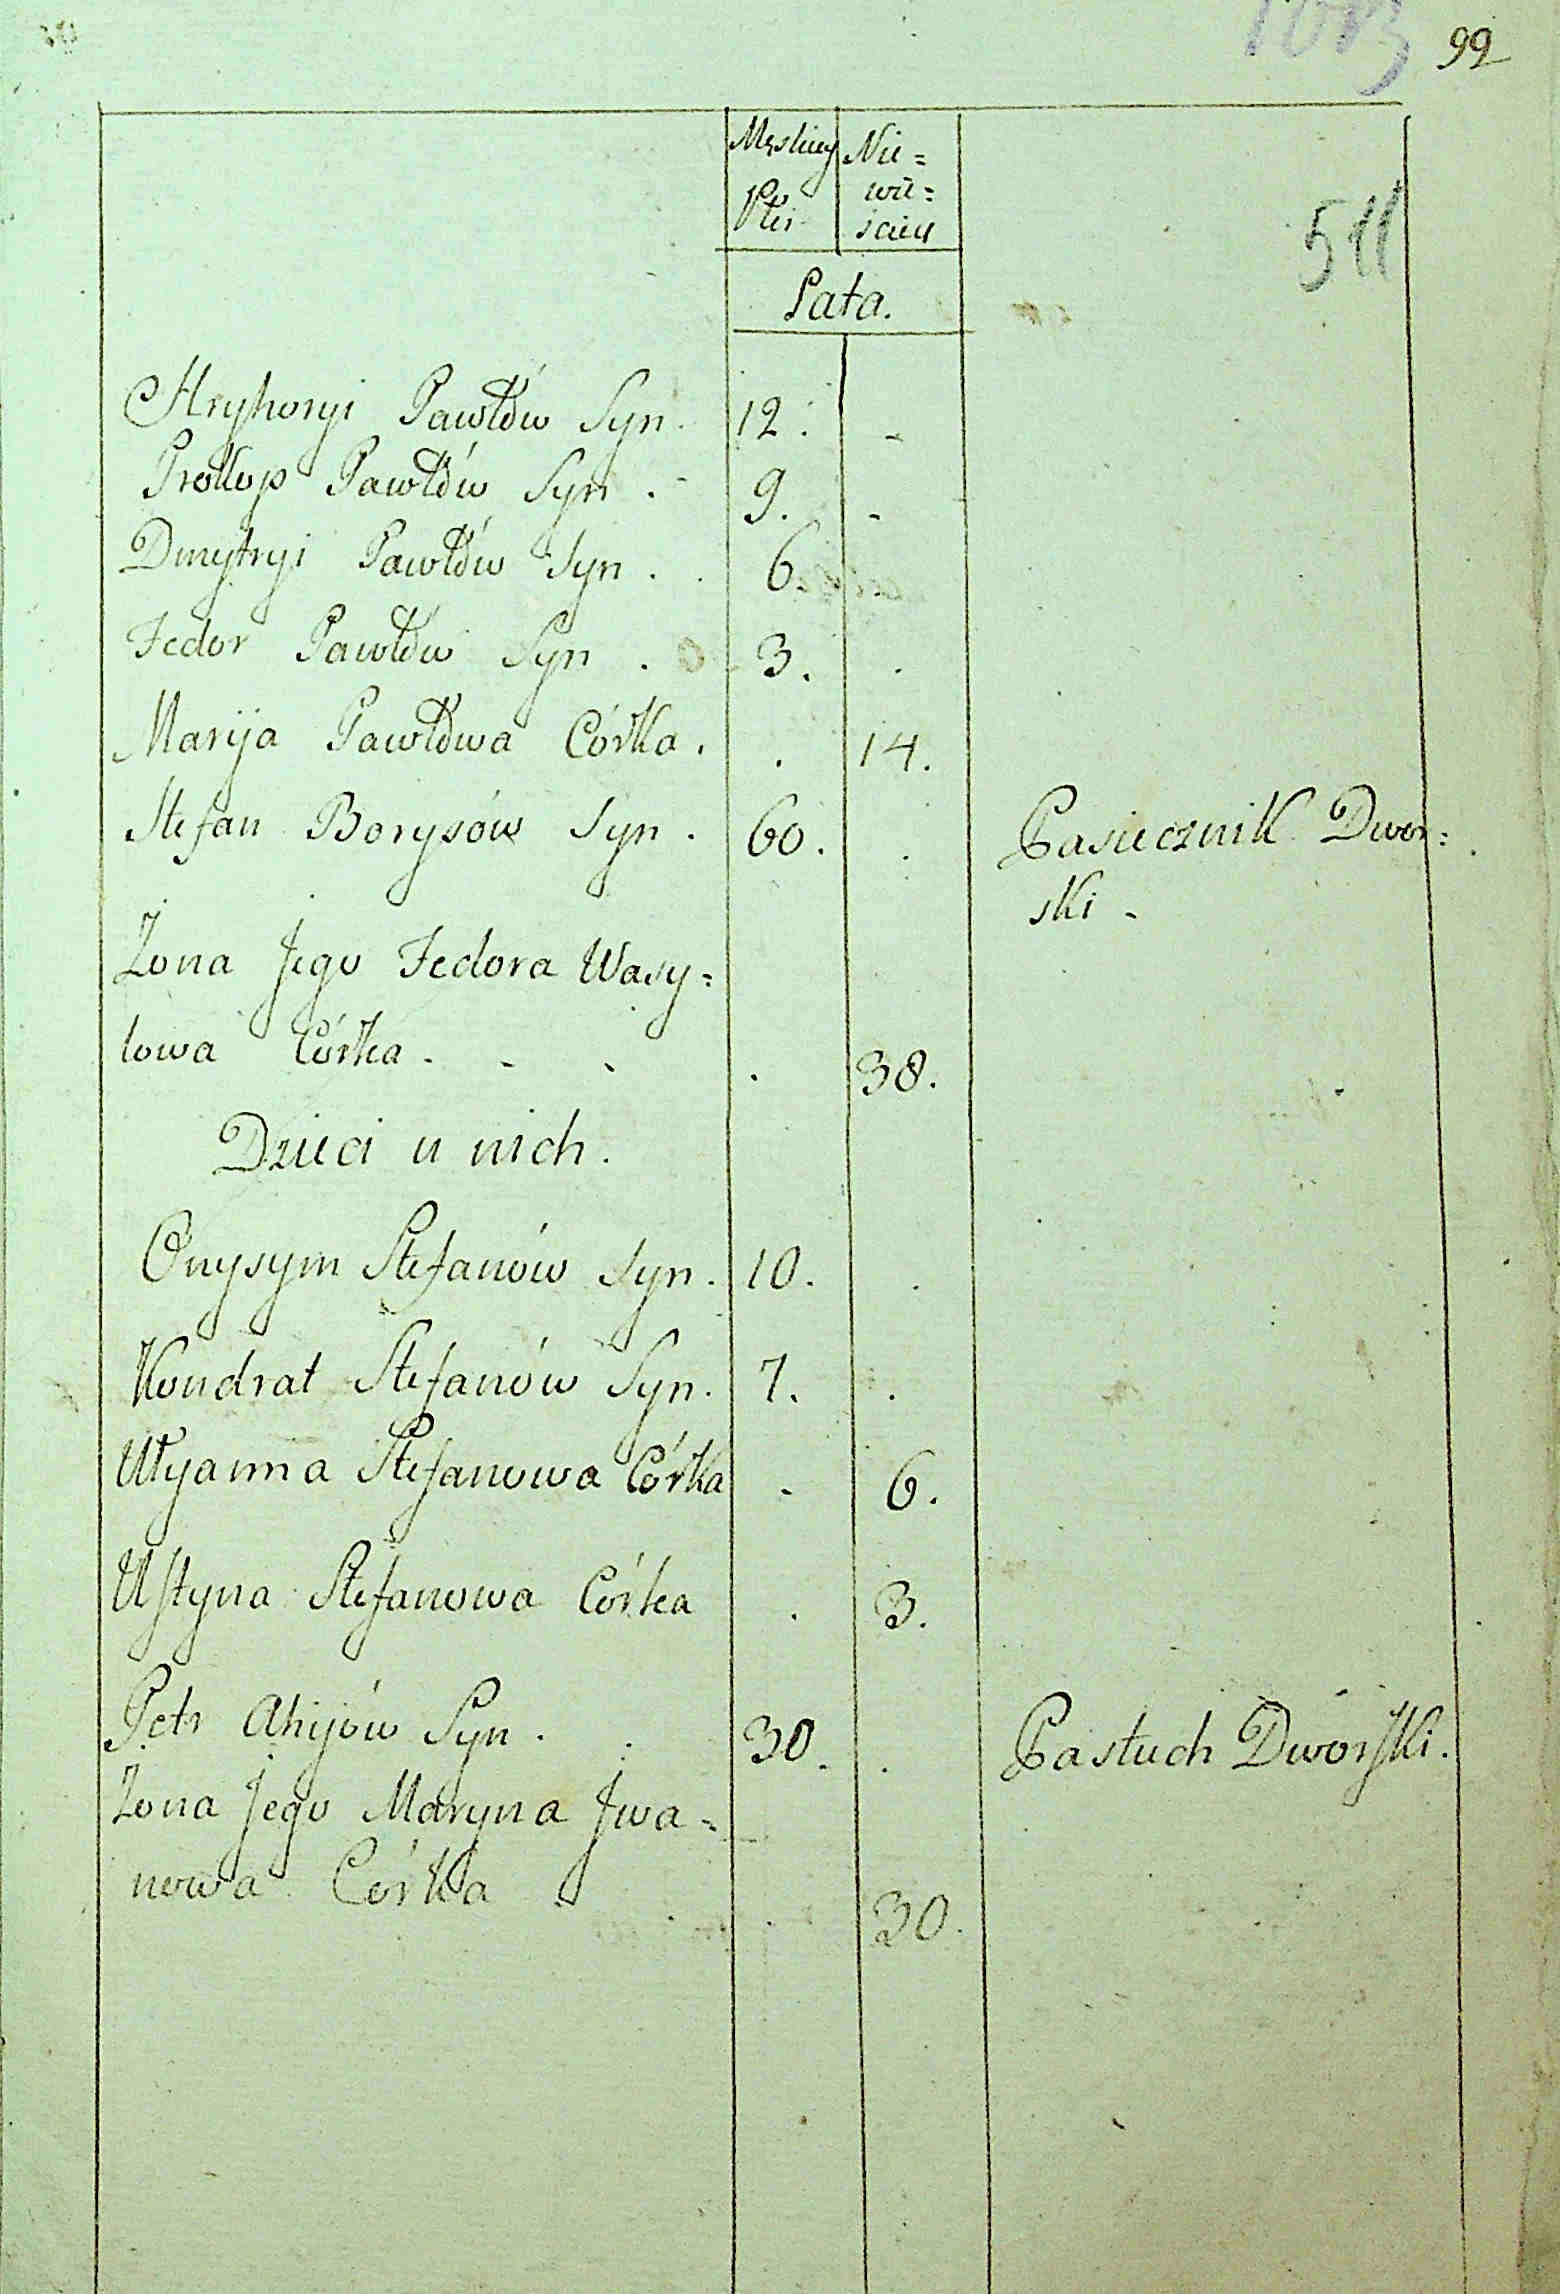 99
Męskiey Nie=
Płci wie=
ściey
511
Lata.
Hryhoryi Pawłów Syn. 12. -
Prokop Pawłów Syn. - 9. -
Dmytryi Pawłów Syn. . 6.
Fedor Pawłów Syn . 3. .
Maryja Pawłowa Córka. . 14.
Stefan Borysów Syn. 60. . Pasiecznik Dwor=
ski -
Żona Jego Fedora Wasy=
lowa Córka. - . . 38.
Dzieci u nich.
Onysym Stefanów Syn. 10. .
Kondrat Stefanów Syn. 7. .
Ułyanna Stefanowa Córka - 6.
Ustyna Stefanowa Córka . 3.
Petr Ahijów Syn. . 30. . Pastuch Dworski.
Żona Jego Maryna Iwa=
nowa Córka . 30.